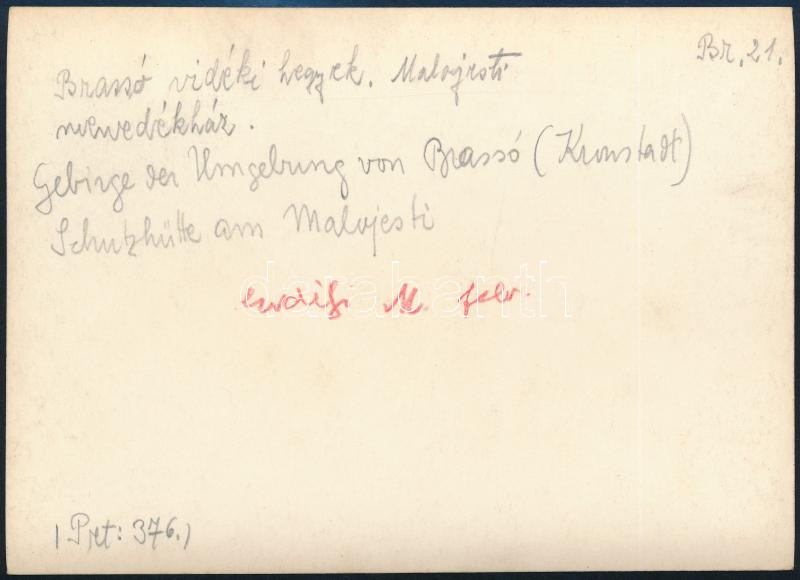 Br. 21.
Brassó vidéki hegyek. Malojesti
menedékház.
Gebirge der Umgebung von Brassó (Kronstadt)
Schutzhütte am Malojesti
darabanth
M. felv.
(Prt: 376.)